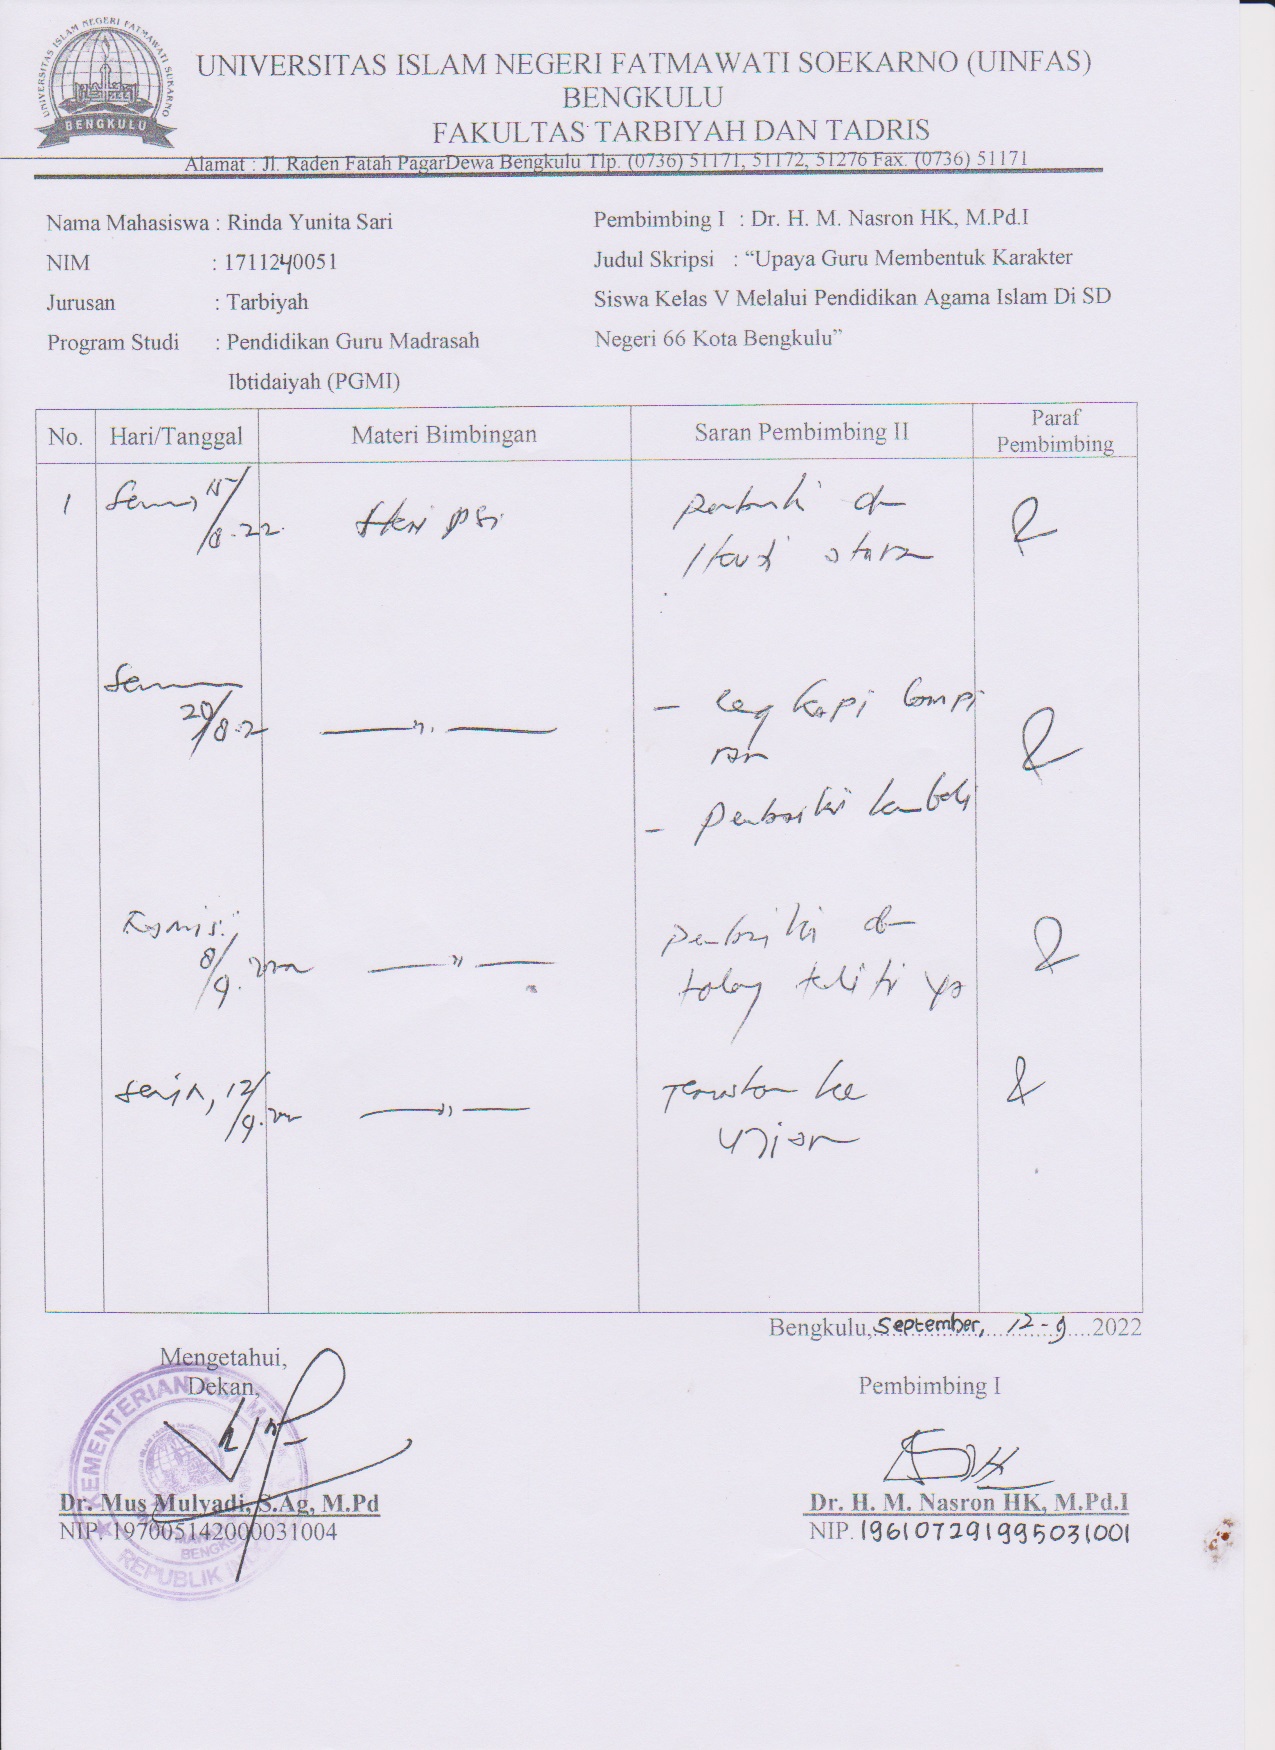 UNIVERSITAS ISLAM NEGERI FATMAWATI SUKARNO
BENGKULU
UNIVERSITAS ISLAM NEGERI FATMAWATI SOEKARNO (UINFAS)
BENGKULU
FAKULTAS TARBIYAH DAN TADRIS
Alamat : Jl. Raden Fatah PagarDewa Bengkulu Tlp. (0736) 51171, 51172, 51276 Fax. (0736) 51171
Nama Mahasiswa : Rinda Yunita Sari
NIM : 1711240051
Jurusan : Tarbiyah
Program Studi : Pendidikan Guru Madrasah
Ibtidaiyah (PGMI)
Pembimbing I : Dr. H. M. Nasron HK, M.Pd.I
Judul Skripsi : “Upaya Guru Membentuk Karakter
Siswa Kelas V Melalui Pendidikan Agama Islam Di SD
Negeri 66 Kota Bengkulu”
No. Hari/Tanggal Materi Bimbingan Saran Pembimbing II Paraf
Pembimbing
1 15/8-22 Skripsi
— lengkapi lampi
ran
— Perbaiki kembali
Kamis, 8/9. Perbaiki
tolong teliti ya
Senin, 12/9. Teruskan ke
ujian
Bengkulu, September, 12-9 2022
Mengetahui,
Dekan,
KEMENTERIAN AGAMA
REPUBLIK
BENGKULU
Dr. Mus Mulyadi, S.Ag, M.Pd
NIP. 197005142000031004
Pembimbing I
Dr. H. M. Nasron HK, M.Pd.I
NIP. 196107291995031001